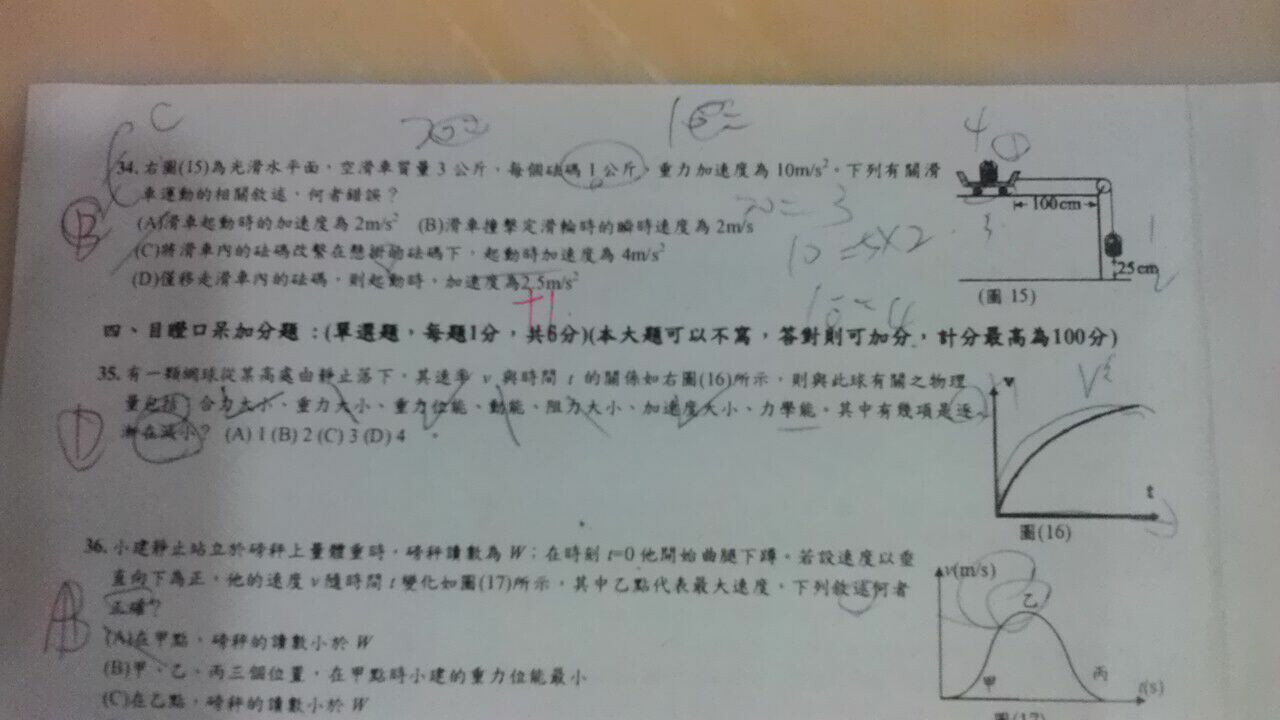 C
34. 右圖(15)為光滑水平面,空滑車質量 3 公斤,每個砝碼 1 公斤,重力加速度為 10m/s²,下列有關滑
車運動的相關敘述,何者錯誤?
B
(A)滑車起動時的加速度為 2m/s² (B)滑車撞擊定滑輪時的瞬時速度為 2m/s
(C)將滑車內的砝碼改繫在懸掛的砝碼下,起動時加速度為 4m/s²
(D)僅移走滑車內的砝碼,則起動時,加速度為2.5m/s²
4
100cm
3
1
25cm
2
(圖 15)
20= 3
10=5X2
10=4
+1
四、目瞪口呆加分題:(單選題,每題1分,共6分)(本大題可以不寫,答對則可加分,計分最高為100分)
35. 有一顆網球從某高處由靜止落下,其速率 v 與時間 t 的關係如右圖(16)所示,則與此球有關之物理
量包括:合力大小、重力大小、重力位能、動能、阻力大小、加速度大小、力學能。其中有幾項是逐
漸在減小? (A) 1 (B) 2 (C) 3 (D) 4
D
v
t
圖(16)
36. 小建靜止站立於磅秤上量體重時,磅秤讀數為 W;在時刻 t=0 他開始曲腿下蹲。若設速度以垂
直向下為正,他的速度 v 隨時間 t 變化如圖(17)所示,其中乙點代表最大速度,下列敘述何者
正確?
A
(A)在甲點,磅秤的讀數小於 W
(B)甲、乙、丙三個位置,在甲點時小建的重力位能最小
(C)在乙點,磅秤的讀數小於 W
v(m/s)
乙
甲
丙
t(s)
圖(17)